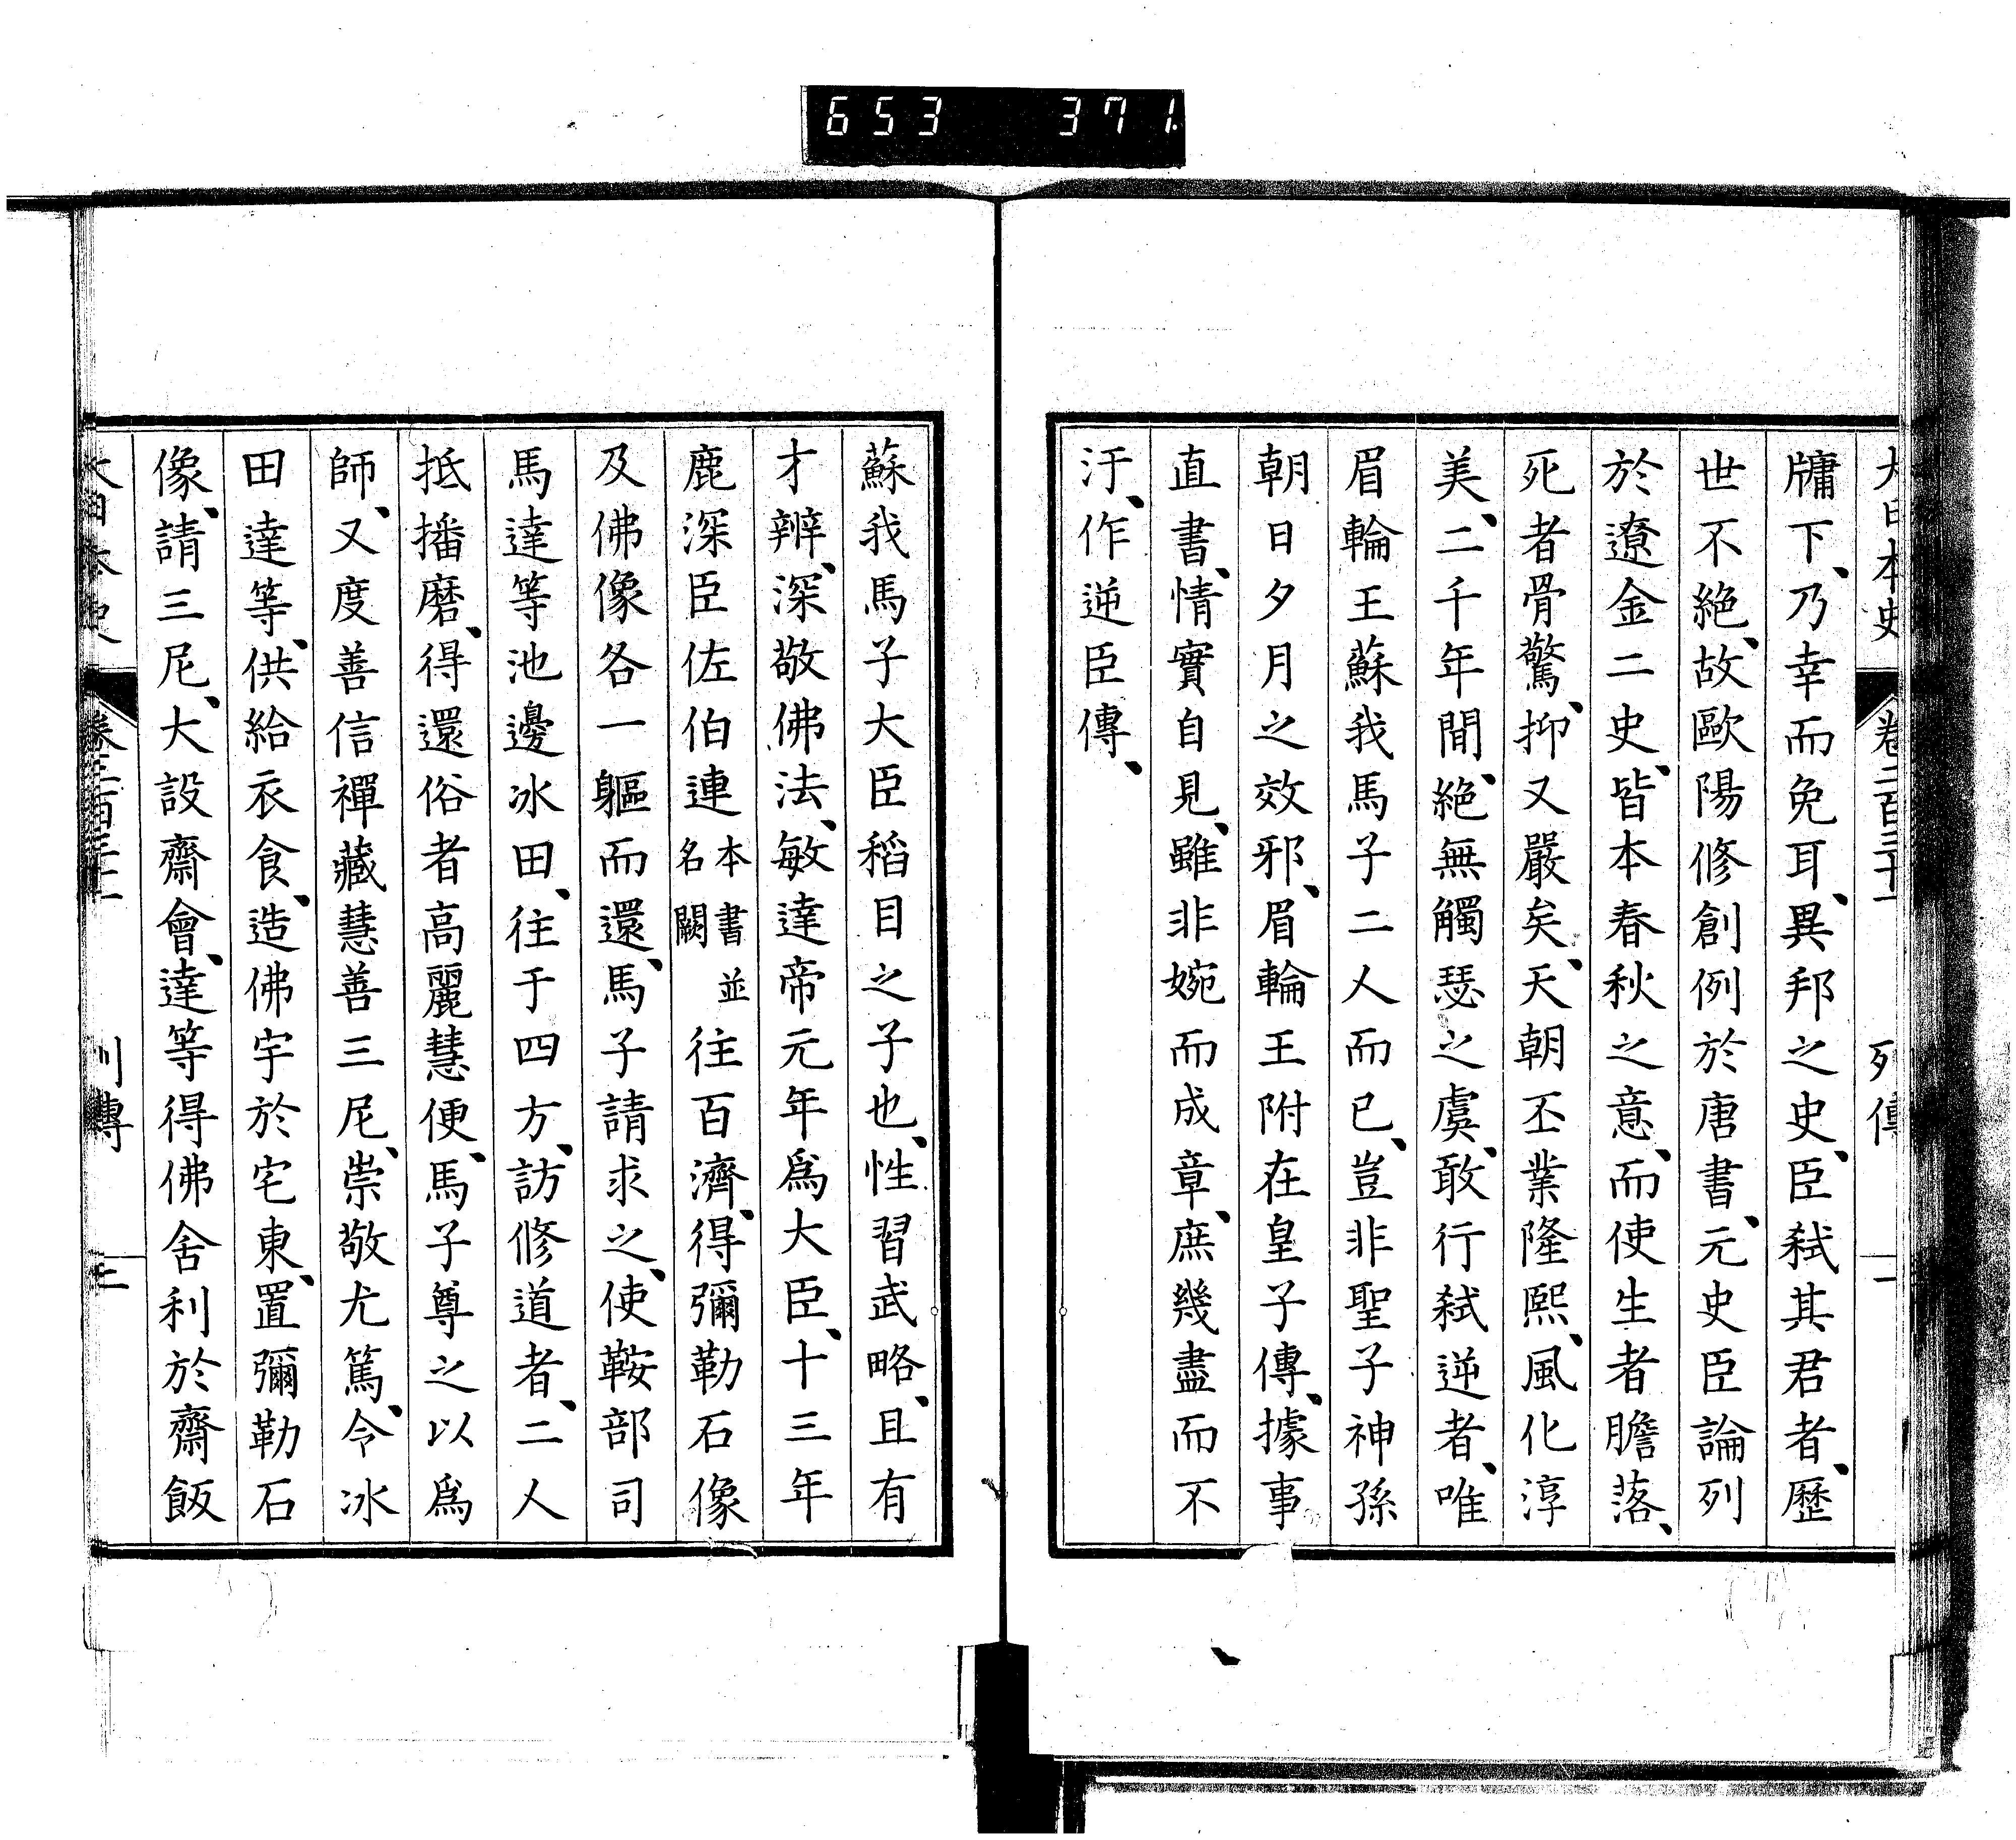 653 371.
大日本史 卷二百三十一 列傳 二
牖下、乃幸而免耳、異邦之史、臣弑其君者、歷
世不絶、故歐陽修創例於唐書、元史臣論列
於遼金二史、皆本春秋之意、而使生者膽落、
死者骨驚、抑又嚴矣、天朝丕業隆熙、風化淳
美、二千年間、絶無觸瑟之虞、敢行弑逆者、唯
眉輪王蘇我馬子二人而已、豈非聖子神孫
朝日夕月之效邪、眉輪王附在皇子傳、據事
直書、情實自見、雖非婉而成章、庶幾盡而不
汙、作逆臣傳、
蘇我馬子大臣稻目之子也、性習武略、且有
才辨、深敬佛法、敏達帝元年爲大臣、十三年
鹿深臣佐伯連本書並名闕往百濟、得彌勒石像
及佛像各一軀而還、馬子請求之、使鞍部司
馬達等池邊冰田、往于四方、訪修道者、二人
抵播磨、得還俗者高麗慧便、馬子尊之以爲
師、又度善信禪藏慧善三尼、崇敬尤篤、令冰
田達等、供給衣食、造佛宇於宅東、置彌勒石
像、請三尼、大設齋會、達等得佛舍利於齋飯
大日本史 卷二百三十一 列傳 三